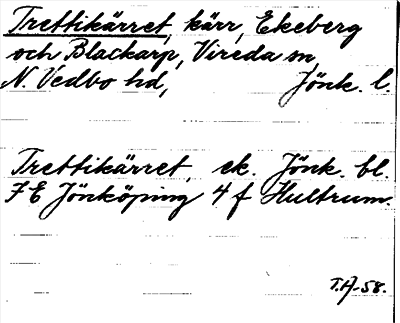 Trettikärret, kärr, Ekeberg
och Blackarp, Vireda sn
N. Vedbo hd, Jönk. l.
Trettikärret, ek. Jönk. bl.
7 E Jönköping 4 f Hultrum.
T.H-58.